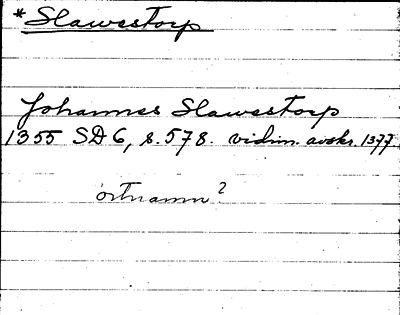 * Slawestorp
Johannes Slawestorp
1355 SD 6, s. 578. vidim. avskr. 1377.
ortnamn?